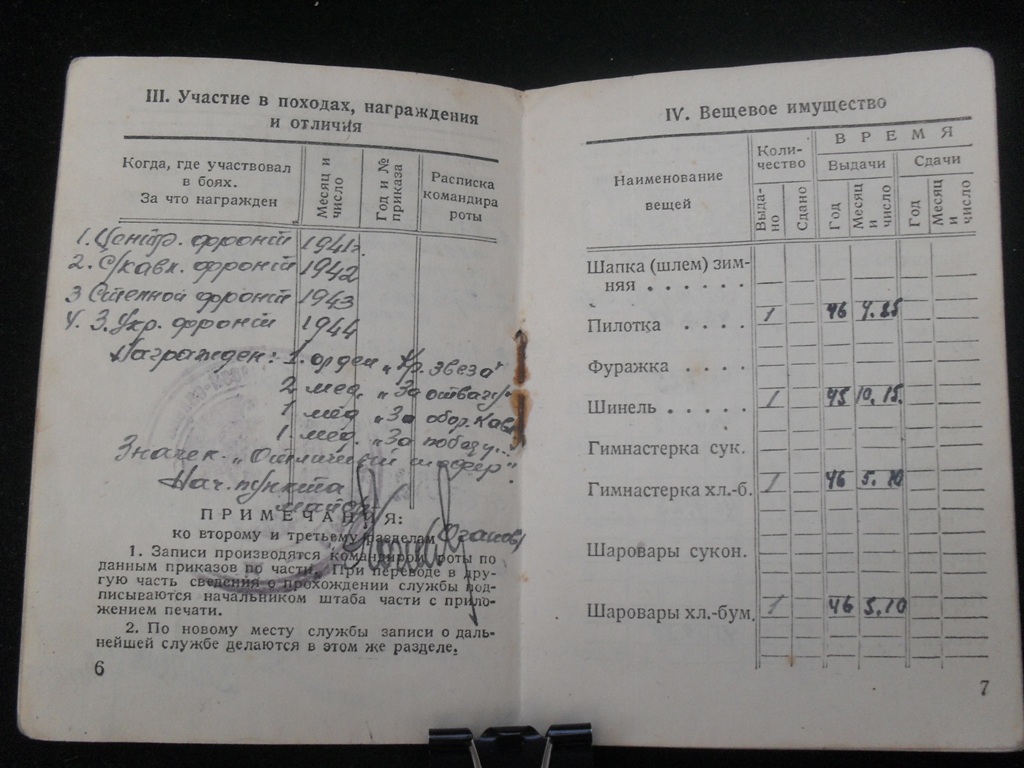 III. Участие в походах, награждения
и отличия
Когда, где участвовал
в боях.
За что награжден
Месяц и
число
Год и №
приказа
Расписка
командира
роты
1. Центр. фронт 1941г.
2. С/кавк. фронт 1942
3 Степной фронт 1943
4. 3. Укр. фронт 1944
Награжден: 1. орден „Кр. звезда"
2 мед. „За отвагу"
1 мед „За обор. Кавк
1. мед. „За победу..."
Значек „Отличный шофер"
Нач. пункта
майор
ПРИМЕЧАНИЯ:
ко второму и третьему разделам
1. Записи производятся командиром роты по
данным приказов по части. При переводе в дру-
гую часть сведения о прохождении службы под-
писываются начальником штаба части с прило-
жением печати.
2. По новому месту службы записи о даль-
нейшей службе делаются в этом же разделе.
6
IV. Вещевое имущество
Наименование
вещей
Коли-
чество
ВРЕМЯ
Выдачи
Сдачи
Выда-
но
Сдано
Год
Месяц
и
число
Год
Месяц
и
число
Шапка (шлем) зим-
няя . . . . . .
Пилотка . . . . 1 46 4.25
Фуражка . . . .
Шинель . . . . . 1 45 10.15.
Гимнастерка сук.
Гимнастерка хл.-б. 1 46 5.10
Шаровары сукон.
Шаровары хл.-бум. 1 46 5.10
7